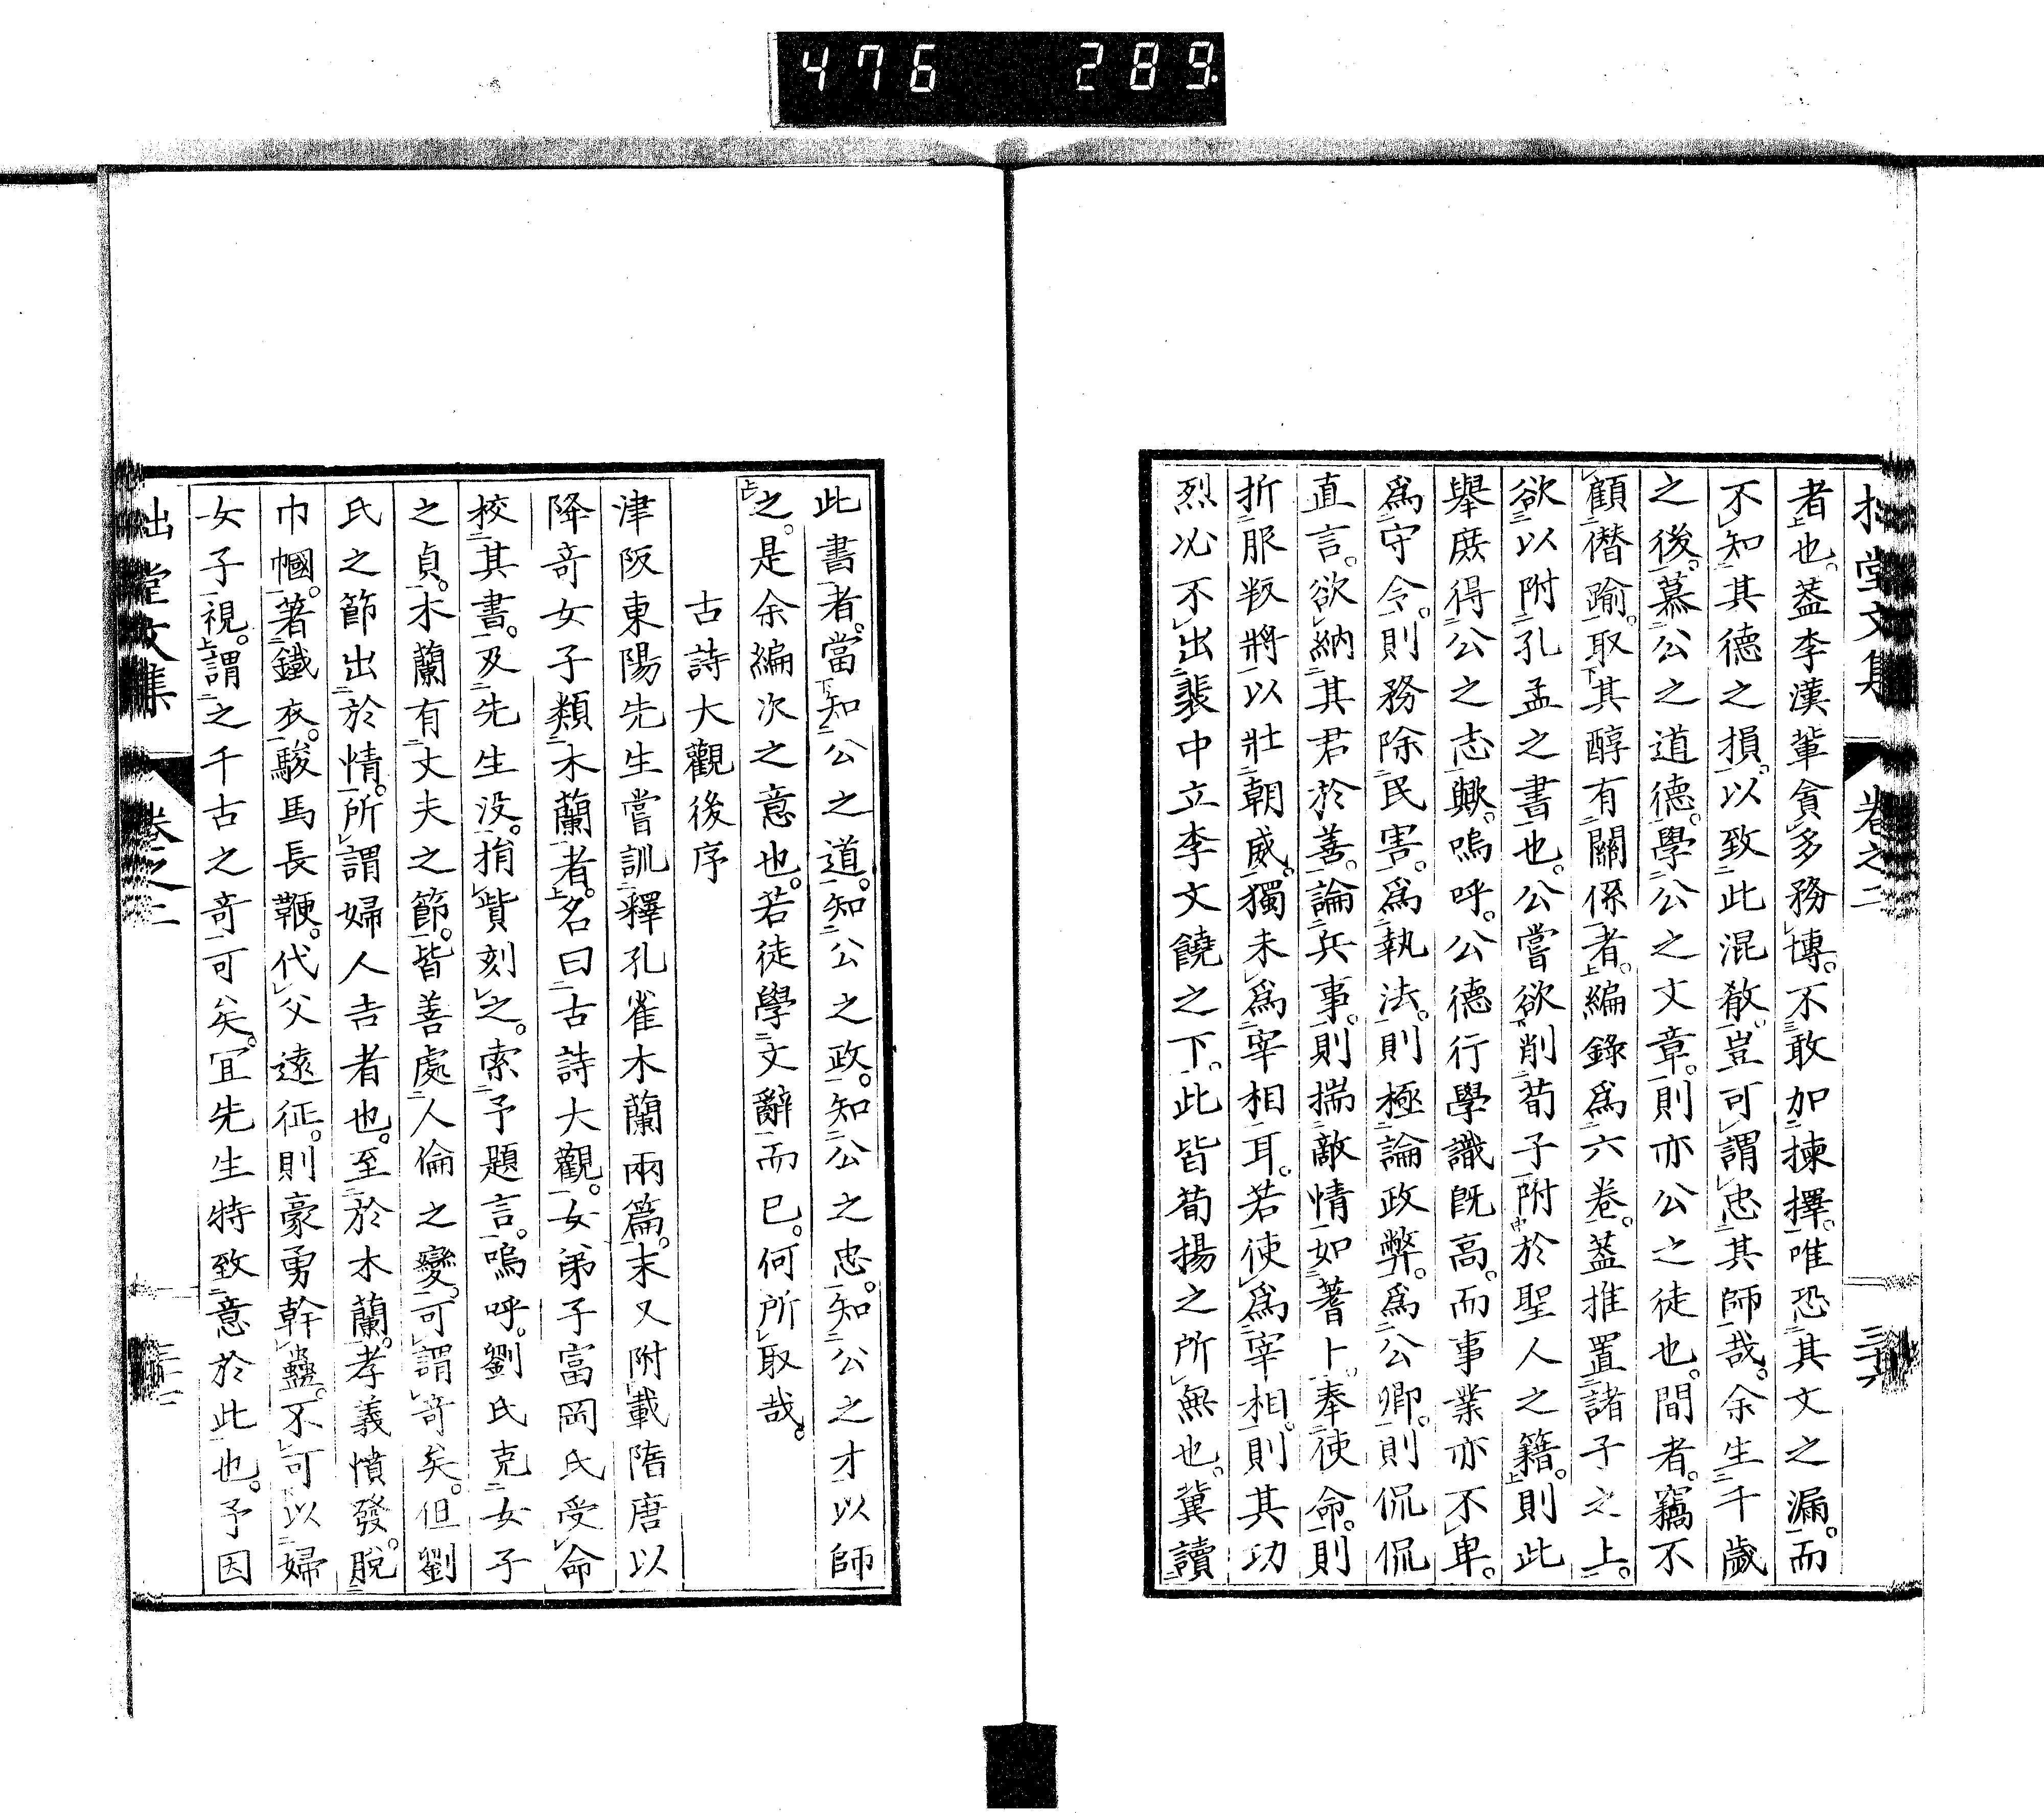 476 289
拙堂文集 卷之二
者也。葢李漢輩貪多務博。不敢加揀擇。唯恐其文之漏。而
不知其德之損。以致此混殽。豈可謂忠其師哉。余生千歲
之後。慕公之道德。學公之文章。則亦公之徒也。間者。竊不
顧僭踰。取其醇有關係者。編錄爲六卷。葢推置諸子之上。
欲以附孔孟之書也。公嘗欲削荀子附於聖人之籍。則此
舉庶得公之志歟。嗚呼。公德行學識旣高。而事業亦不卑。
爲守令。則務除民害。爲執法。則極論政弊。爲公卿。則侃侃
直言。欲納其君於善。論兵事。則揣敵情如蓍卜。奉使命。則
折服叛將以壯朝威。獨未爲宰相耳。若使爲宰相。則其功
烈必不出裴中立李文饒之下。此皆荀揚之所無也。冀讀
此書者。當知公之道。知公之政。知公之忠。知公之才以師
之。是余編次之意也。若徒學文辭而已。何所取哉。
古詩大觀後序
津阪東陽先生嘗訓釋孔雀木蘭兩篇。末又附載隋唐以
降奇女子類木蘭者。名曰古詩大觀。女弟子富岡氏受命
校其書。及先生没。捐貲刻之。索予題言。嗚呼。劉氏克女子
之貞。木蘭有丈夫之節。皆善處人倫之變。可謂奇矣。但劉
氏之節出於情。所謂婦人吉者也。至於木蘭。孝義憤發。脫
巾幗。著鐵衣。駿馬長鞭。代父遠征。則豪勇幹蠱。不可以婦
女子視。謂之千古之奇可矣。宜先生特致意於此也。予因
拙堂文集 卷之二